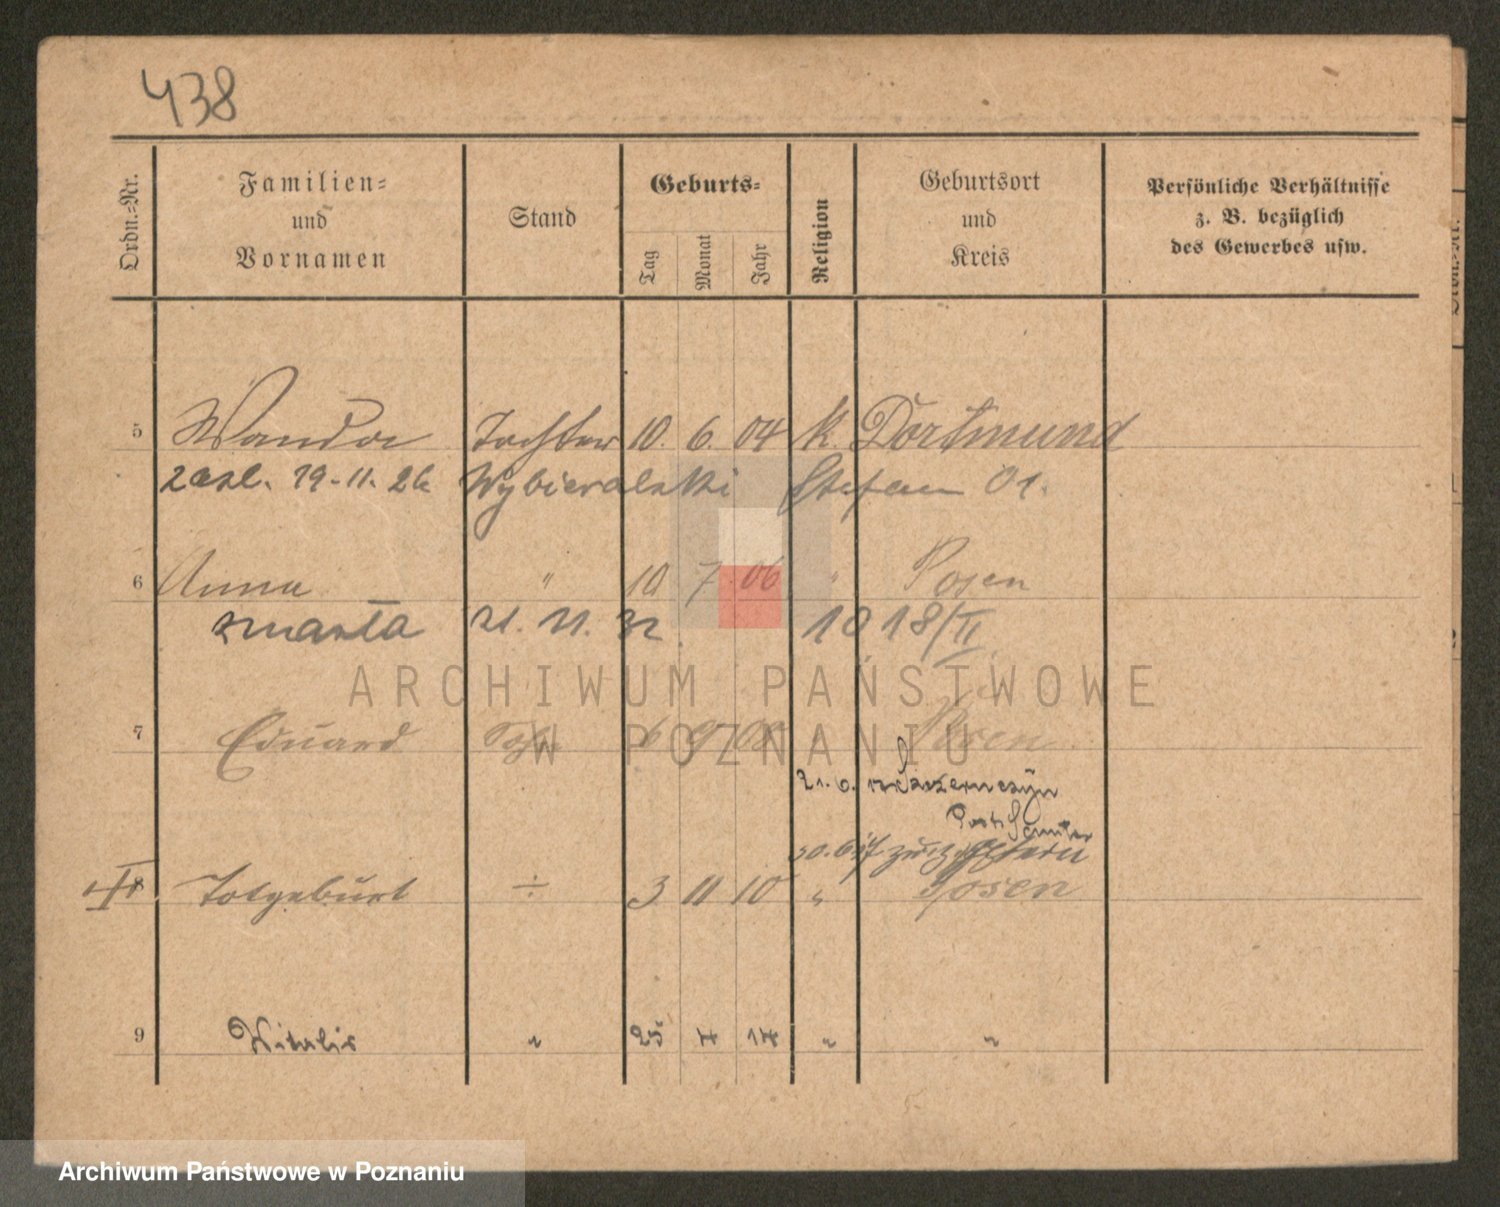 438
Ordn.=Nr.
Familien=
und
Vornamen
Stand
Geburts=
Tag
Monat
Jahr
Religion
Geburtsort
und
Kreis
Persönliche Verhältnisse
z. B. bezüglich
des Gewerbes usw.
5 Wanda Tochter 10. 6. 04 k. Dortmund
zaśl. 19-11. 26 Wybieralski Stefan 01.
6 Anna " 10 7 06 " Posen
zmarła 21. 11. 32 1018/II
ARCHIWUM PAŃSTWOWE
7 Eduard Sohn 6 9 08 Posen
W POZNANIU
21. 6.
Post Samter
30. 6 17 zur Eltern
8 Totgeburt ÷ 3 11 10 " Posen
9 Witalis " 25 4 14 " "
Archiwum Państwowe w Poznaniu